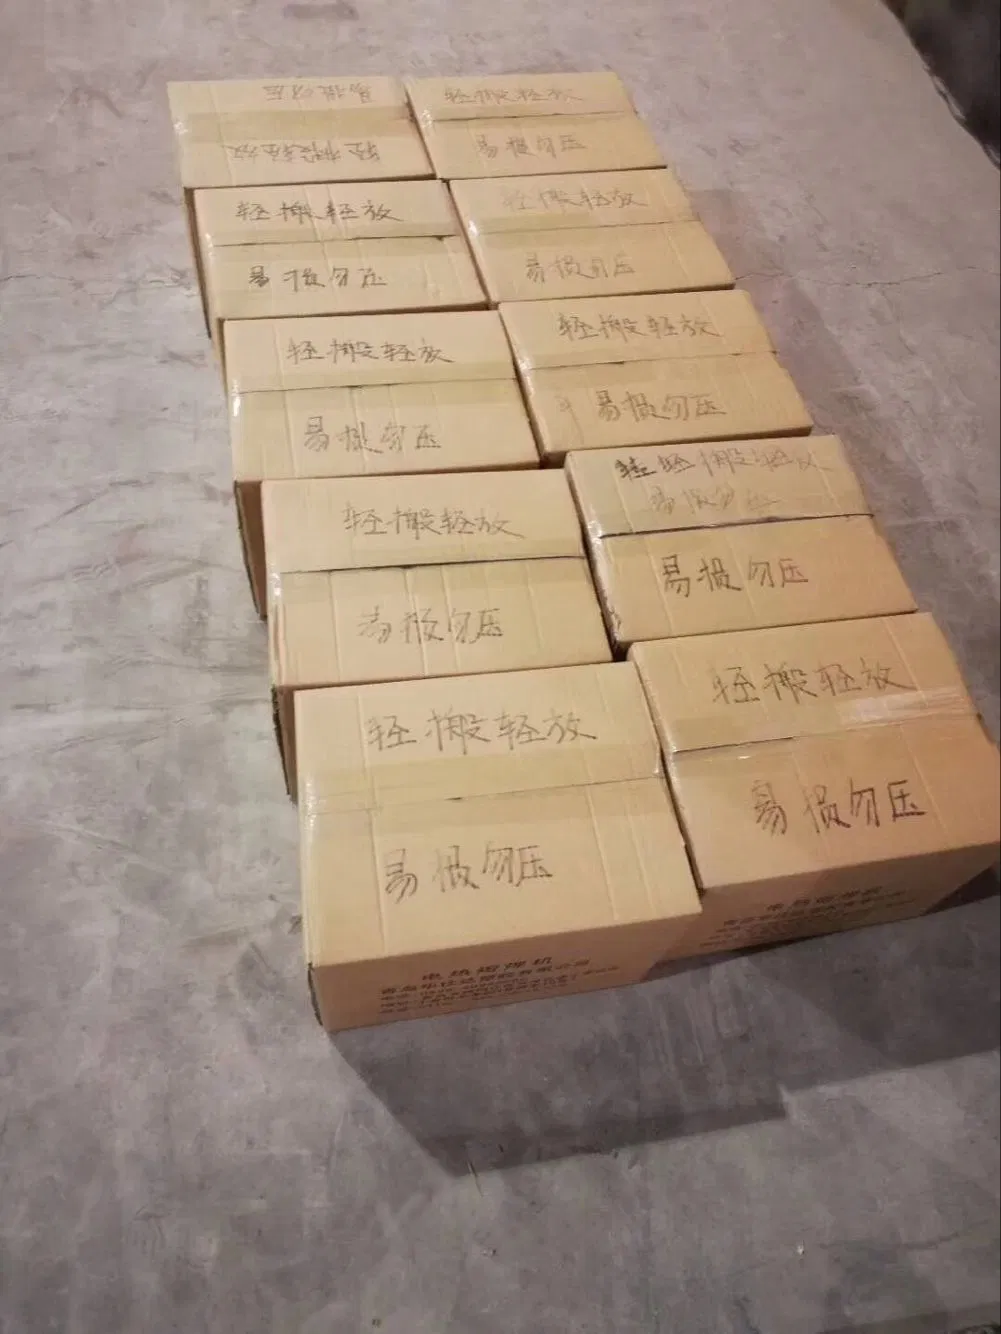 易损勿压
轻搬轻放
轻搬轻放
易损勿压
轻搬轻放
易损勿压
轻搬轻放
易损勿压
轻搬轻放
易损勿压
轻搬轻放
易损勿压
轻搬轻放
易损勿压
轻轻搬轻放
易损勿压
易损勿压
轻搬轻放
易损勿压
轻搬轻放
易损勿压
电热
电热